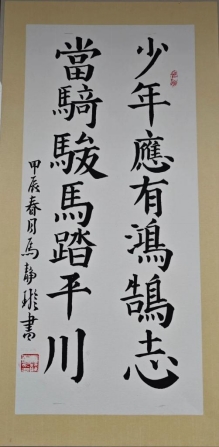 少年應有鴻鵠志
當騎駿馬踏平川
甲辰春月馬靜璇書